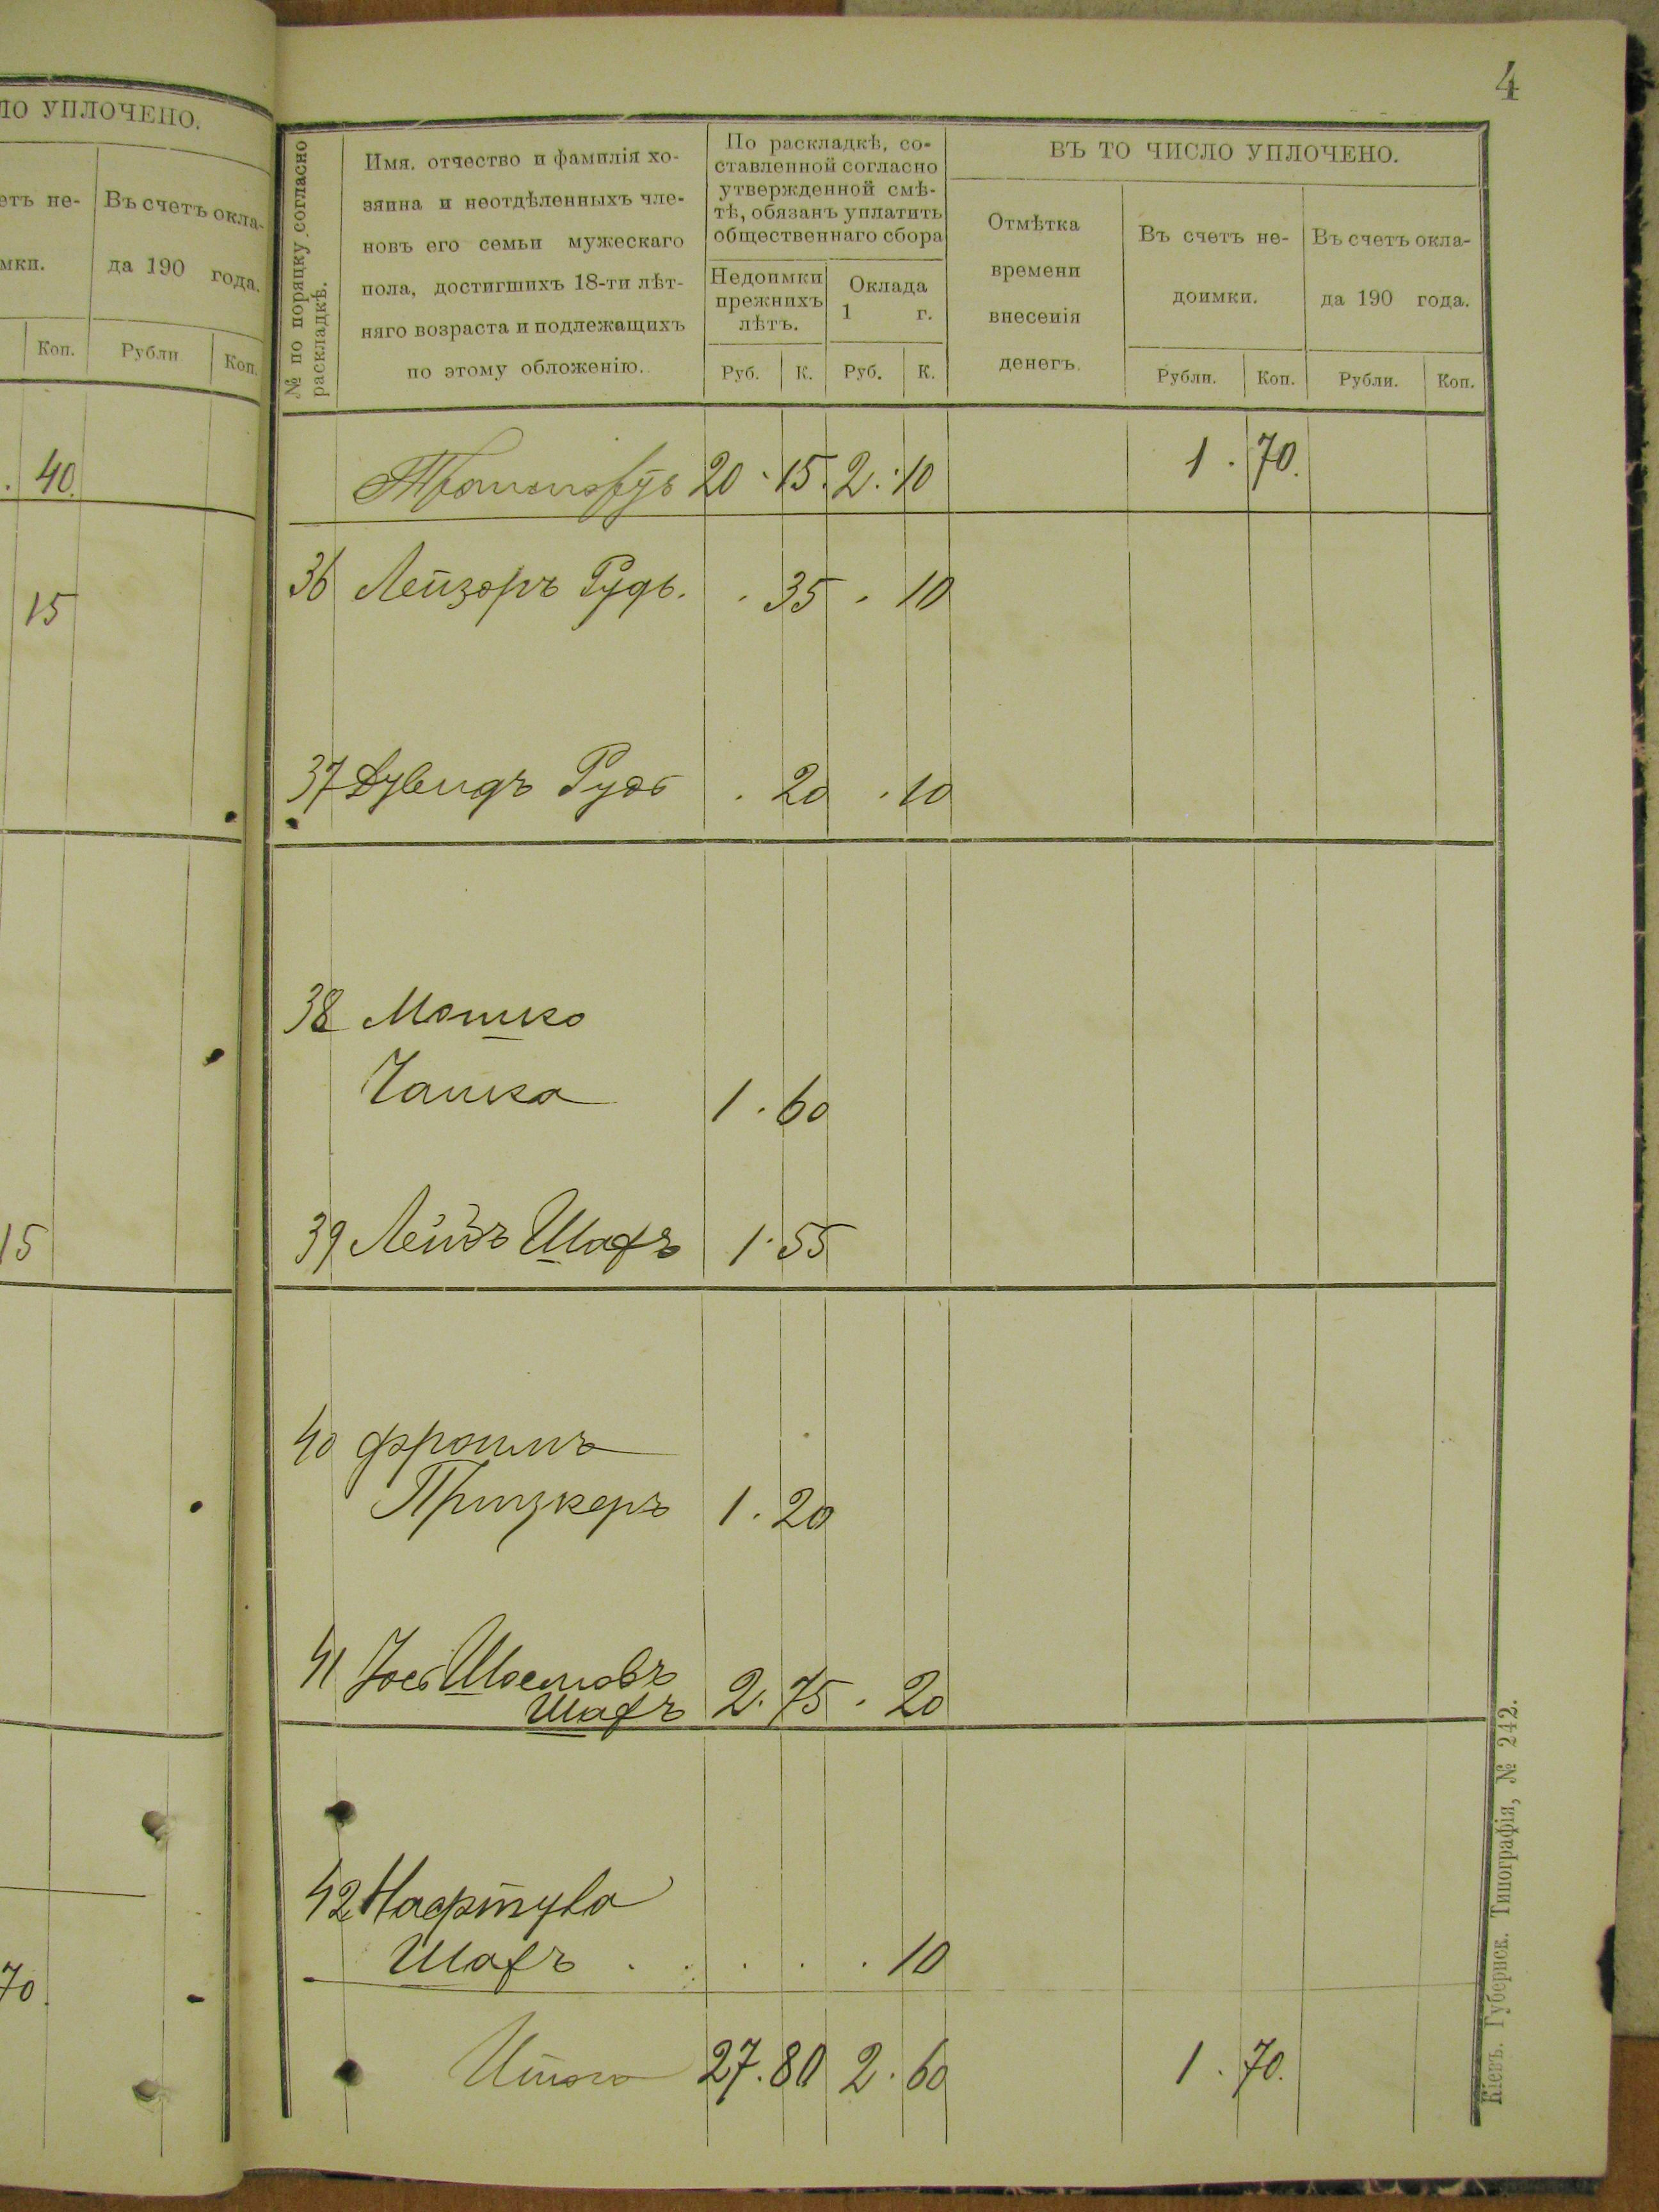 4
ЛО УПЛОЧЕНО.
етъ не-
мки.
Въ счетъ окла-
да 190 года.
Коп.
Рубли
Коп.
40
15
15
70
№ по поряцку согласно
раскладкѣ.
Имя. отчество и фамилія хо-
зяина и неотдѣленныхъ чле-
новъ его семьи мужескаго
пола, достигшихъ 18-ти лѣт-
няго возраста и подлежащихъ
по этому обложенію.
По раскладкѣ, со-
ставленной согласно
утвержденной смѣ-
тѣ, обязанъ уплатить
общественнаго сбора
Недоимки
прежнихъ
лѣтъ.
Оклада
1 г.
Руб. К. Руб. К.
ВЪ ТО ЧИСЛО УПЛОЧЕНО.
Отмѣтка
времени
внесенія
денегъ.
Въ счетъ не-
доимки.
Въ счетъ окла-
да 190 года.
Рубли. Коп. Рубли. Коп.
20 . 15. 2. 10 1 . 70.
36 Лейзоръ Рудь. . 35 . 10
37 Дувидъ Рудь . 20 . 10
38 Мошко
Чашка 1 . 60
39 Лейзъ Шафъ 1. 55
40 Фроимъ
Прицкеръ 1 . 20
41 Іось
Шафъ 2. 75 . 20
42 Нафтула
Шафъ . . . . . 10
Итого 27. 80 2. 60 1 . 70.
Кіевъ. Губернск. Типографія, № 242.